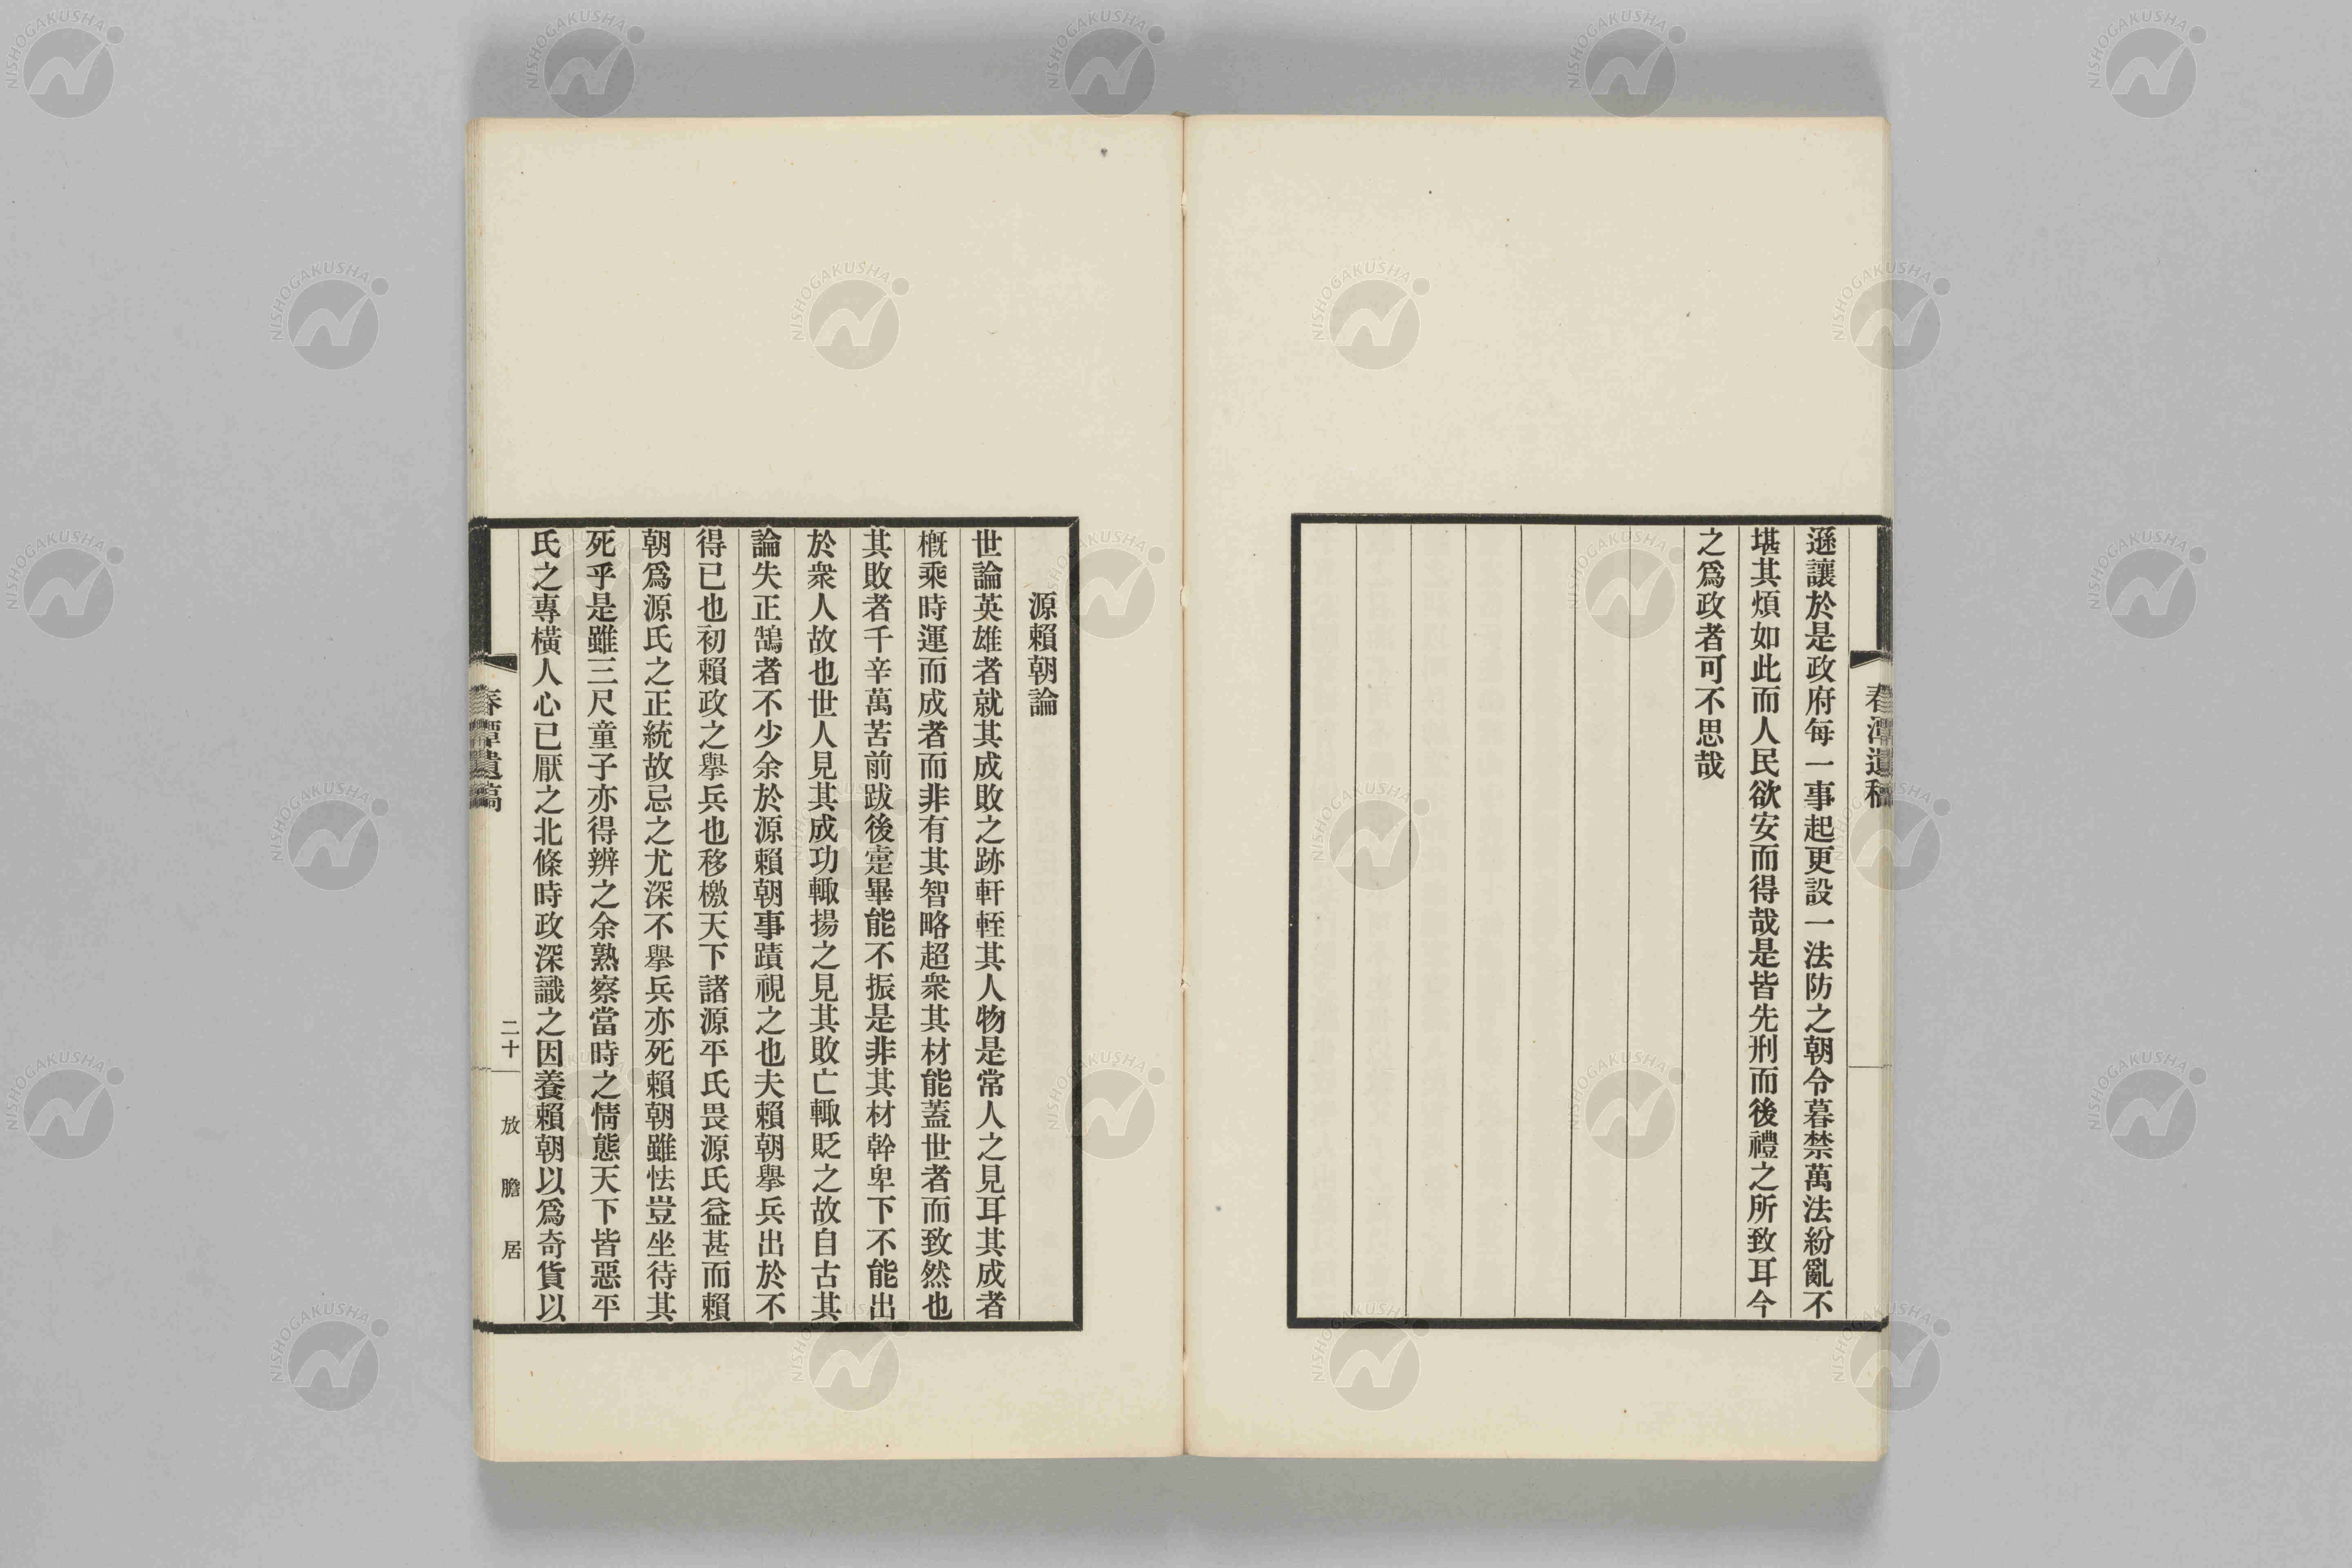 春潭遺稿
遜讓於是政府每一事起更設一法防之朝令暮禁萬法紛亂不
堪其煩如此而人民欲安而得哉是皆先刑而後禮之所致耳今
之爲政者可不思哉
源賴朝論
世論英雄者就其成敗之跡軒輊其人物是常人之見耳其成者
概乘時運而成者而非有其智略超衆其材能蓋世者而致然也
其敗者千辛萬苦前跋後疐畢能不振是非其材幹卑下不能出
於衆人故也世人見其成功輙揚之見其敗亡輙貶之故自古其
論失正鵠者不少余於源賴朝事蹟視之也夫賴朝擧兵出於不
得已也初賴政之擧兵也移檄天下諸源平氏畏源氏益甚而賴
朝爲源氏之正統故忌之尤深不擧兵亦死賴朝雖怯豈坐待其
死乎是雖三尺童子亦得辨之余熟察當時之情態天下皆惡平
氏之專橫人心已厭之北條時政深識之因養賴朝以爲奇貨以
春潭遺稿
二十
放膽居
NISHOGAKUSHA